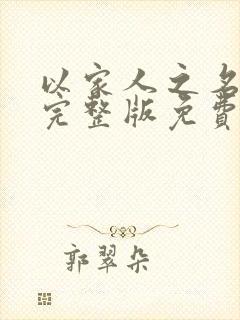 以家人之名
完整版免費
郭翠朵